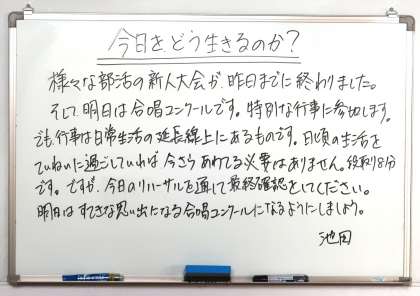 今日をどう生きるのか?
様々な部活の新人大会が、昨日までに終わりました。
そして、明日は合唱コンクールです。特別な行事に参加します。
でも、行事は日常生活の延長線上にあるものです。日頃の生活を
ていねいに過ごしていれば、今さらあわてる必要はありません。段取り8分
です。ですが、今日のリハーサルを通して最終確認をしてください。
明日はすてきな思い出になる合唱コンクールになるようにしましょう。
池田